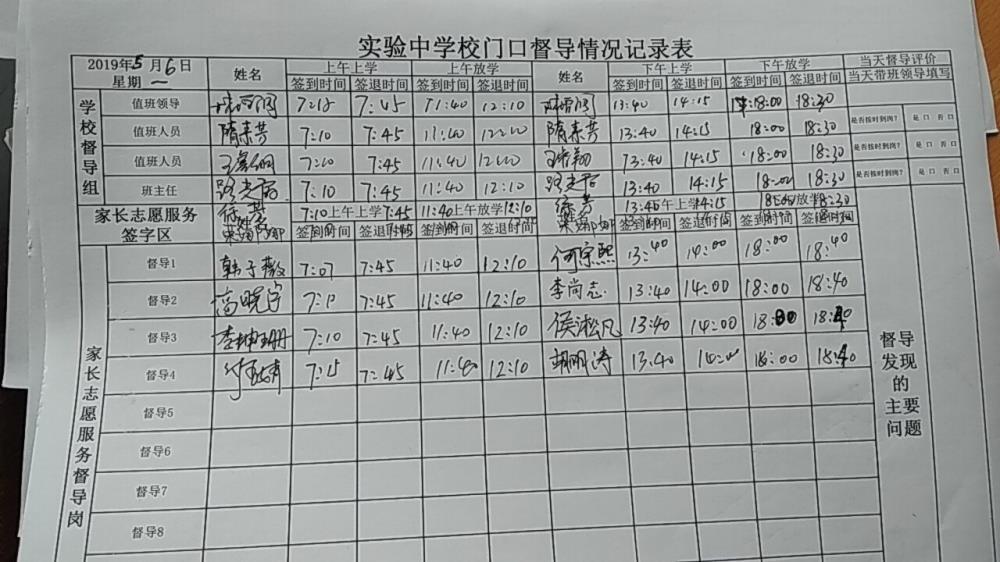 实验中学校门口督导情况记录表
2019年5月6日 星期一 姓名 上午上学 上午放学 姓名 下午上学 下午放学 当天督导评价
签到时间 签退时间 签到时间 签退时间 签到时间 签退时间 签到时间 签退时间 当天带班领导填写
学校督导组
值班领导 7:45 11:40 12:10 13:40 14:15 18:00 18:30
值班人员 隋来芳 7:10 7:45 11:40 12:00 隋来芳 13:40 14:15 18:00 18:30 是否按时到岗? 是口 否口
值班人员 7:45 11:40 13:40 14:15 18:00 18:30 是否按时到岗? 是口 否口
班主任 7:10 7:45 11:40 12:10 13:40 14:15 18:30 是否按时到岗? 是口 否口
家长志愿服务签字区 7:10 上午上学 7:45 11:40 上午放学 12:10 徐芳 13:40 下午上学 14:15 下午放学 18:30
签到时间 签退时间 签到时间 签退时间 签到时间 签退时间 签到时间 签退时间
家长志愿服务督导岗
督导1 韩子薇 7:07 7:45 11:40 12:10 何宗熙 13:40 14:00 18:00 18:40
督导2 高晓宇 7:10 7:45 11:40 12:10 李尚志 13:40 14:00 18:00 18:40
督导3 7:10 7:45 11:40 12:10 侯淞凡 13:40 14:00 18:00 18:40
督导4 7:15 7:45 11:40 12:10 13:40 18:00 18:40
督导5
督导6
督导7
督导8
督导发现的主要问题